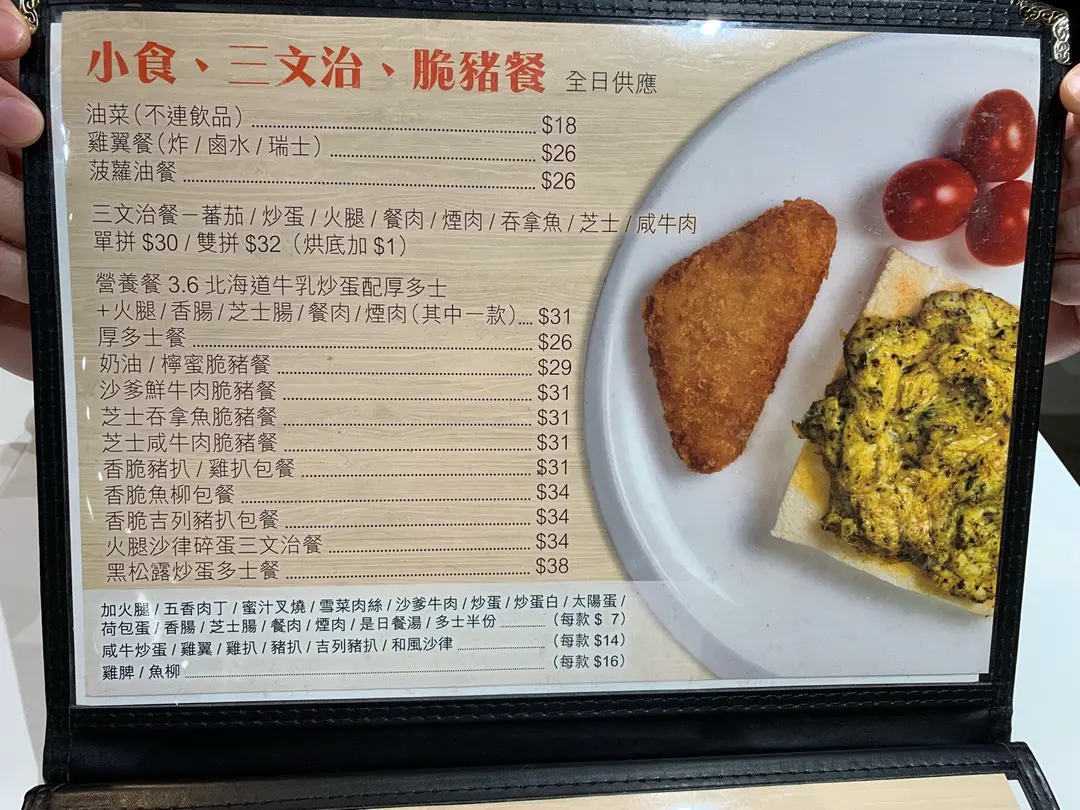 小食、三文治、脆豬餐 全日供應
油菜(不連飲品) $18
雞翼餐(炸 / 鹵水 / 瑞士) $26
菠蘿油餐 $26
三文治餐－蕃茄 / 炒蛋 / 火腿 / 餐肉 / 煙肉 / 吞拿魚 / 芝士 / 咸牛肉
單拼 $30 / 雙拼 $32 (烘底加 $1)
營養餐 3.6 北海道牛乳炒蛋配厚多士
+火腿 / 香腸 / 芝士腸 / 餐肉 / 煙肉(其中一款) $31
厚多士餐 $26
奶油 / 檸蜜脆豬餐 $29
沙爹鮮牛肉脆豬餐 $31
芝士吞拿魚脆豬餐 $31
芝士咸牛肉脆豬餐 $31
香脆豬扒 / 雞扒包餐 $31
香脆魚柳包餐 $34
香脆吉列豬扒包餐 $34
火腿沙律碎蛋三文治餐 $34
黑松露炒蛋多士餐 $38
加火腿 / 五香肉丁 / 蜜汁叉燒 / 雪菜肉絲 / 沙爹牛肉 / 炒蛋 / 炒蛋白 / 太陽蛋 /
荷包蛋 / 香腸 / 芝士腸 / 餐肉 / 煙肉 / 是日餐湯 / 多士半份 (每款 $ 7)
咸牛炒蛋 / 雞翼 / 雞扒 / 豬扒 / 吉列豬扒 / 和風沙律 (每款 $14)
雞脾 / 魚柳 (每款 $16)